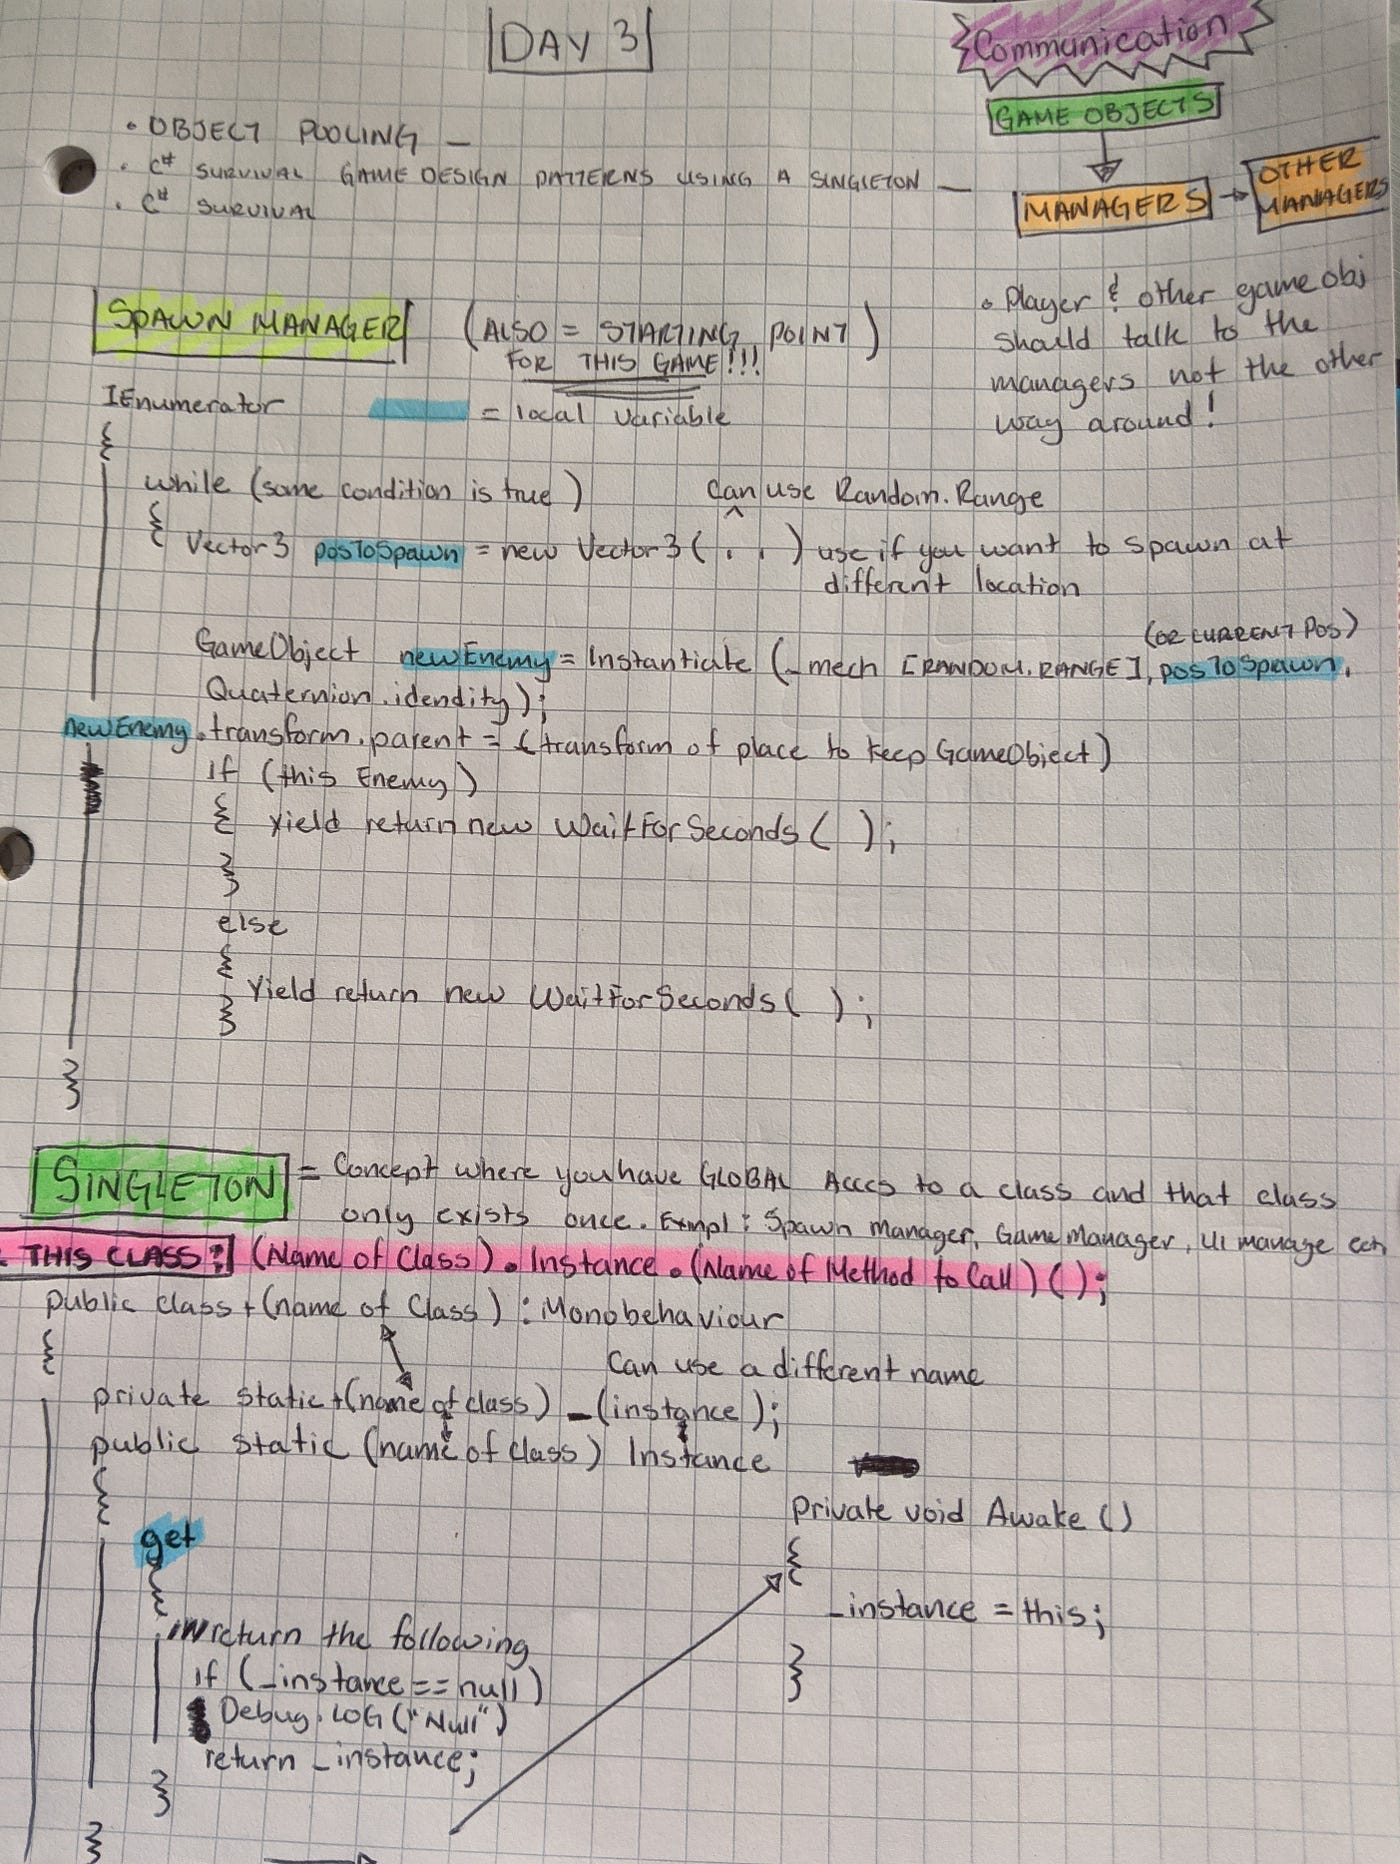 DAY 3
Communication
GAME OBJECTS
MANAGERS → OTHER MANAGERS
• OBJECT POOLING —
• C# SURVIVAL GAME DESIGN PATTERNS USING A SINGLETON —
• C# SURVIVAL
• Player & other game obj
should talk to the
managers not the other
way around!
SPAWN MANAGER (ALSO = STARTING POINT)
FOR THIS GAME!!!
IEnumerator = local variable
{
while (some condition is true) can use Random.Range
{ Vector3 posToSpawn = new Vector3( . . ) use if you want to spawn at
different location
(OR CURRENT POS)
GameObject newEnemy = Instantiate (_mech [RANDOM.RANGE], posToSpawn,
Quaternion.idendity);
newEnemy.transform.parent = (transform of place to keep GameObject)
if (this Enemy)
{ yield return new WaitForSeconds( );
}
else
{
Yield return new WaitForSeconds( );
}
}
SINGLETON = Concept where you have GLOBAL Acccs to a class and that class
only exists once. Exmpl: Spawn manager, Game Manager, UI manage
THIS CLASS: (Name of Class). Instance. (Name of Method to Call) ();
public class + (name of Class) : Monobehaviour
{
Can use a different name
private static + (name of class) _(instance);
public static (name of class) Instance
{
get
{
return the following
if (_instance == null)
Debug.LOG("Null")
return _instance;
}
}
private void Awake ()
{
_instance = this;
}